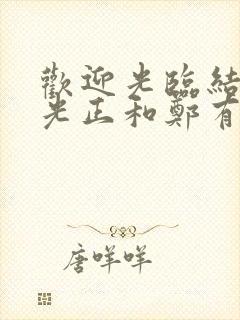 歡迎光臨結
光正和鄭有
唐咩咩